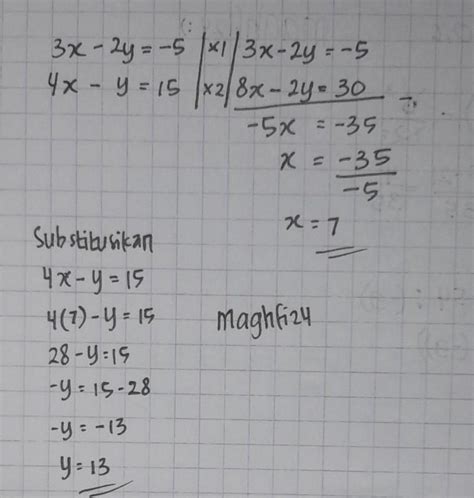 3x - 2y = -5 | x1 | 3x - 2y = -5
4x - y = 15 | x2 | 8x - 2y = 30 -
-5x = -35
x = -35/-5
x = 7
Substitusikan
4x - y = 15
4(7) - y = 15
Maghfi24
28 - y = 15
-y = 15 - 28
-y = -13
y = 13